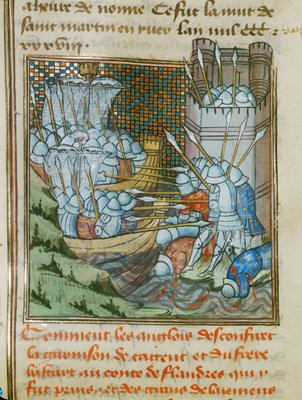 a heure de nonne Ce fut la nuit de
saint martin en yver lan mil ccc
xxxviii
Comment les anglois desconfirent
la garnison de cagent et du frere
bastart au conte de flandres qui y
fut prins et des